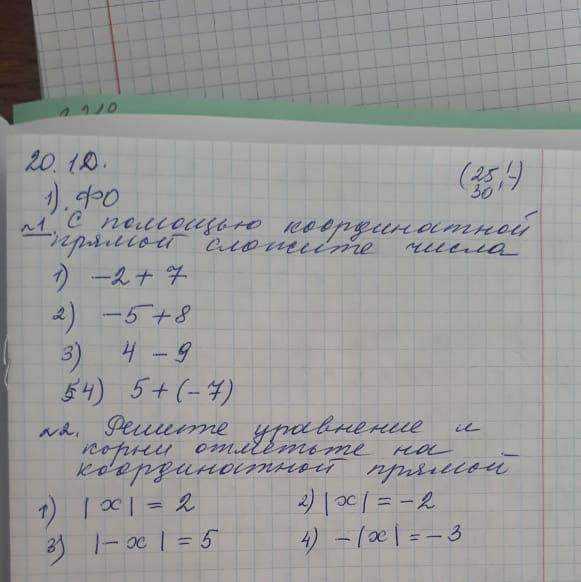 20.12.
(25'-
30')
1). ФО
№1. С помощью координатной
прямой сложите числа
1) -2 + 7
2) -5 + 8
3) 4 - 9
4) 5 + (-7)
№2. Решите уравнение и
корни отметьте на
координатной прямой
1) |x| = 2 2) |x| = -2
3) |-x| = 5 4) -|x| = -3